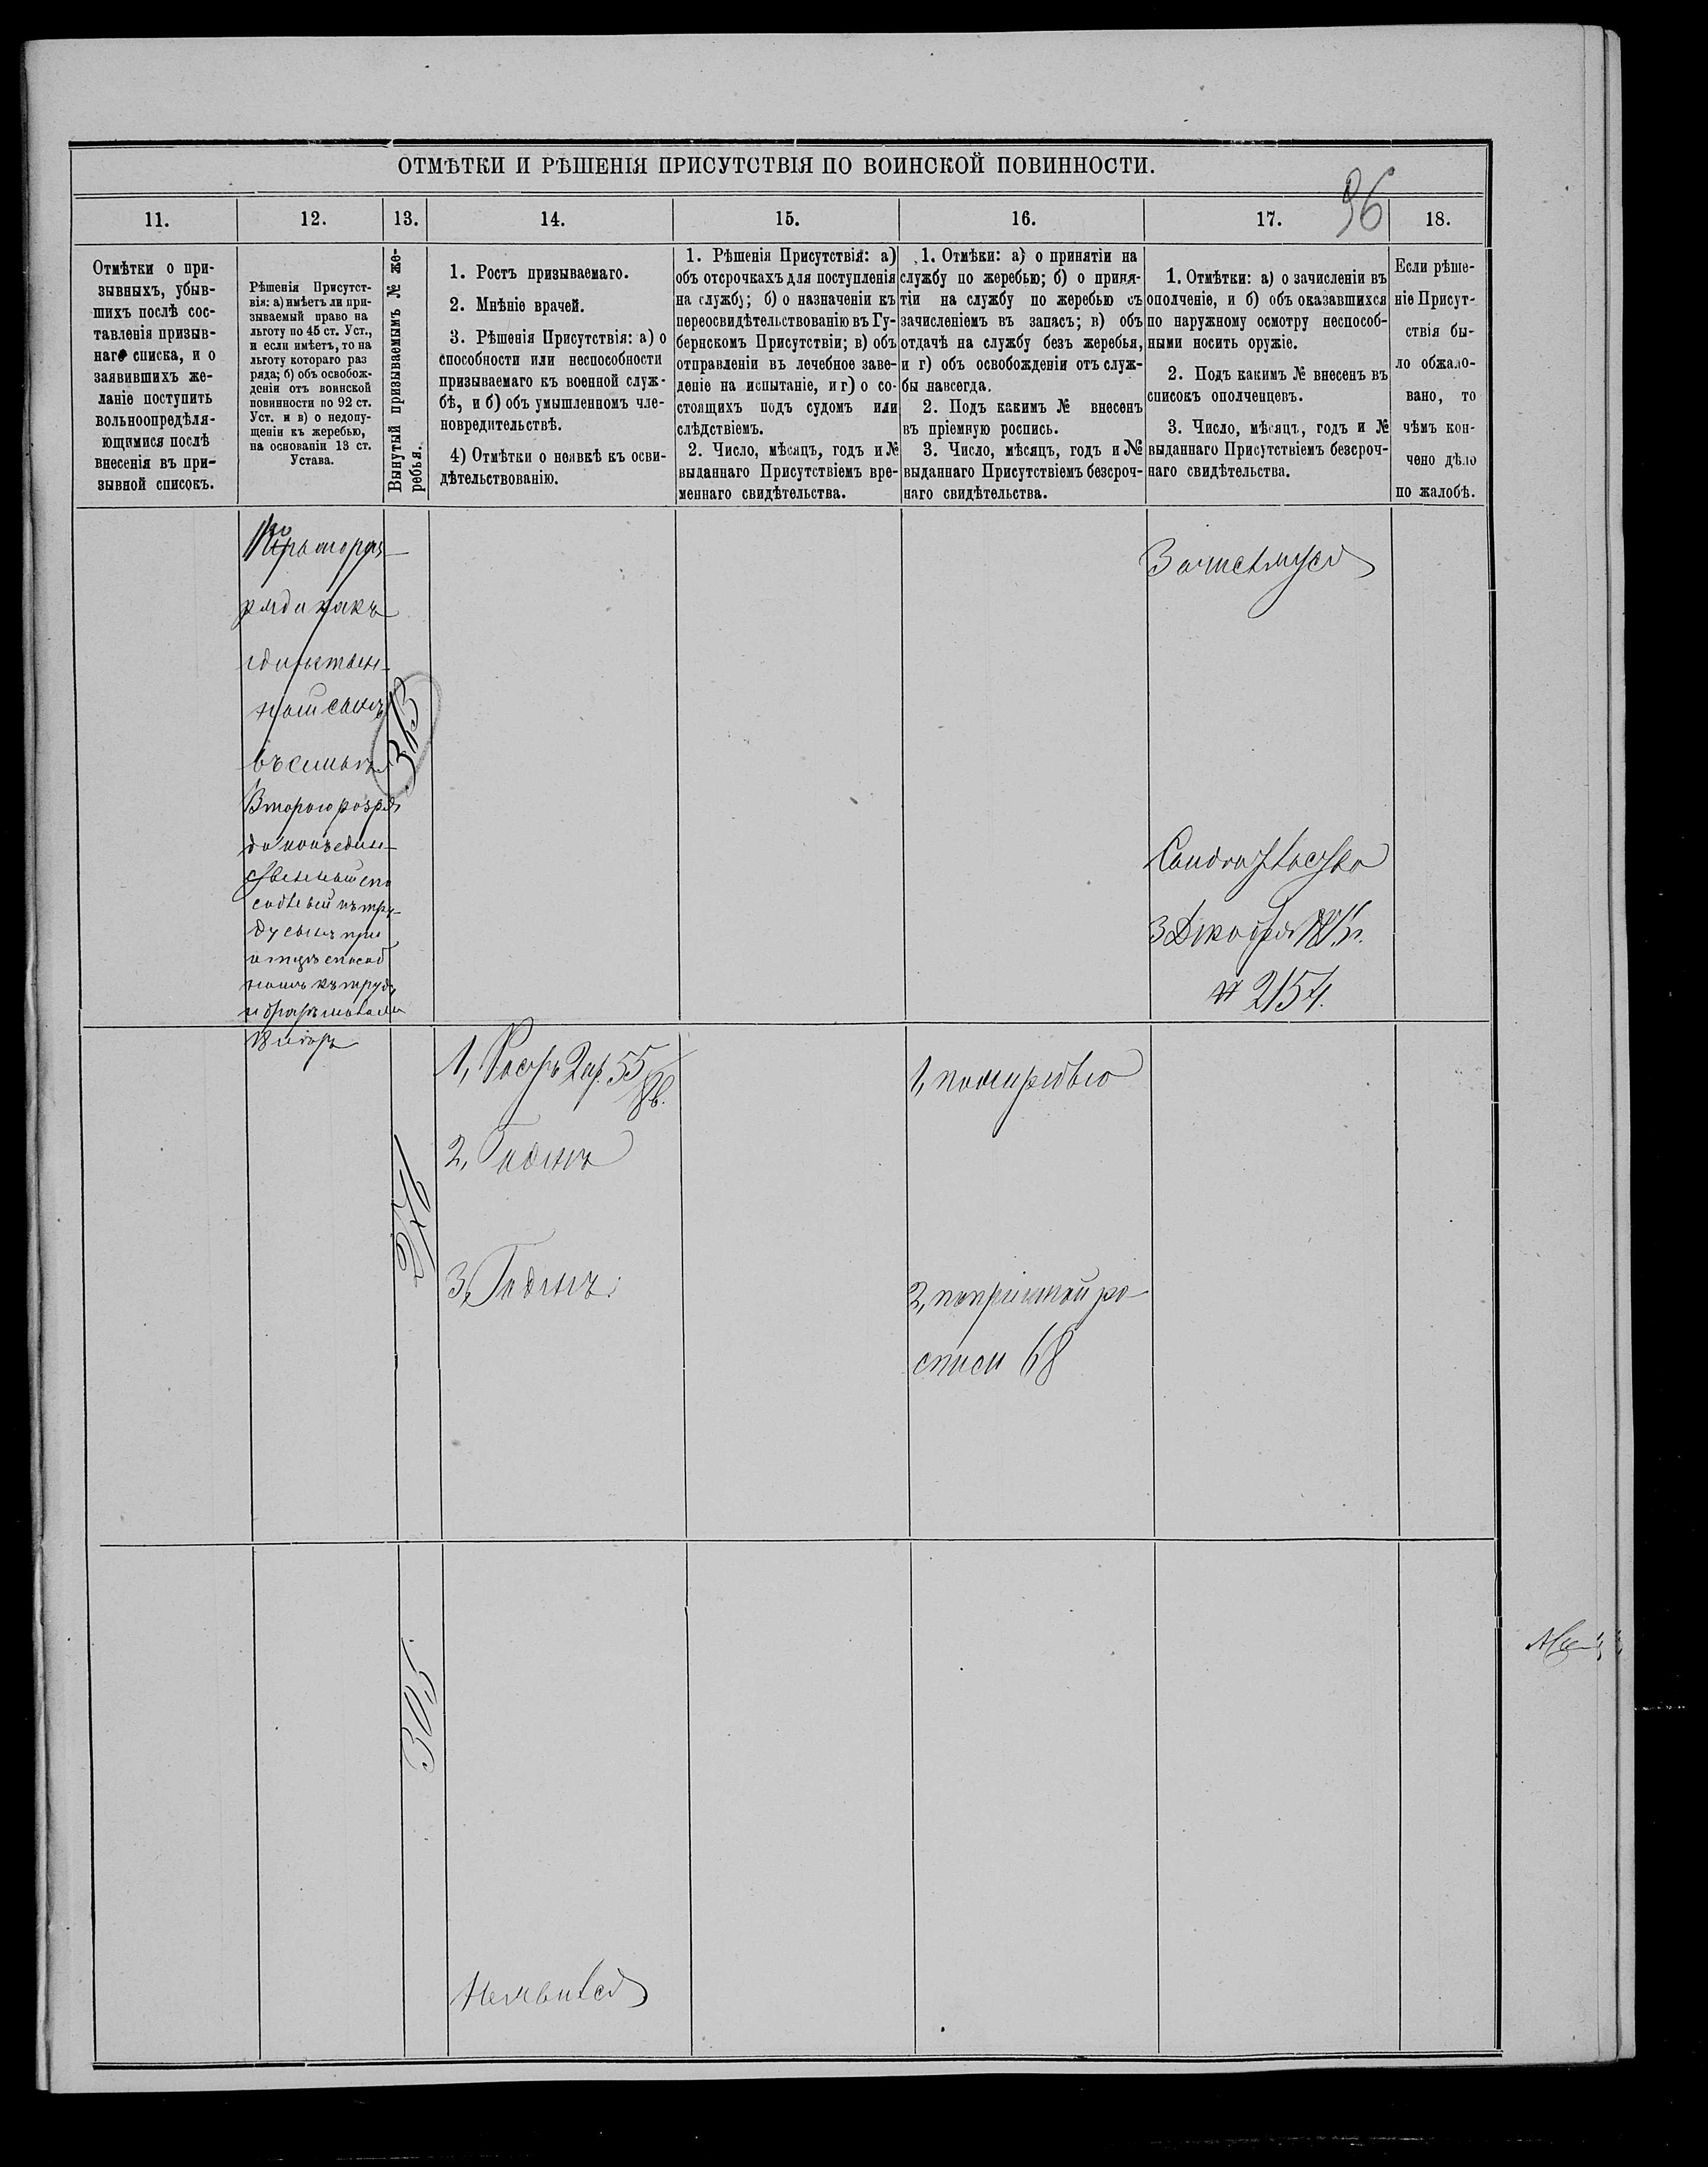 ОТМѢТКИ И РѢШЕНІЯ ПРИСУТСТВІЯ ПО ВОИНСКОЙ ПОВИННОСТИ.
96
11.
12.
13.
14.
15.
16.
17.
18.
Отмѣтки о при-
зывныхъ, убыв-
шихъ послѣ сос-
тавленія призыв-
наго списка, и о
заявившихъ же-
ланіе поступить
вольноопредѣля-
ющимися послѣ
внесенія въ при-
зывной списокъ.
Рѣшенія Присутст-
вія: а) имѣетъ ли при-
зываемый право на
льготу по 45 ст. Уст.,
и если имѣетъ, то на
льготу котораго раз
ряда; б) объ освобож-
деніи отъ воинской
повинности по 92 ст.
Уст. и в) о недопу-
щеніи къ жеребью,
на основаніи 13 ст.
Устава.
Вынутый призываемымъ № же-
ребья.
1. Ростъ призываемаго.
2. Мнѣніе врачей.
3. Рѣшенія Присутствія: а) о
способности или неспособности
призываемаго къ военной служ-
бѣ, и б) объ умышленномъ чле-
новредительствѣ.
4) Отмѣтки о неявкѣ къ осви-
дѣтельствованію.
1. Рѣшенія Присутствія: а)
объ отсрочкахъ для поступленія
на службу; б) о назначеніи къ
переосвидѣтельствованію въ Гу-
бернскомъ Присутствіи; в) объ
отправленіи въ лечебное заве-
деніе на испытаніе, и г) о со-
стоящихъ подъ судомъ или
слѣдствіемъ.
2. Число, мѣсяцъ, годъ и №
выданнаго Присутствіемъ вре-
меннаго свидѣтельства.
1. Отмѣки: а) о принятіи на
службу по жеребью; б) о приня-
тіи на службу по жеребью съ
зачисленіемъ въ запасъ; в) объ
отдачѣ на службу безъ жеребья,
и г) объ освобожденіи отъ служ-
бы навсегда.
2. Подъ какимъ № внесенъ
въ пріемную роспись.
3. Число, мѣсяцъ, годъ и №
выданнаго Присутствіемъ безсроч-
наго свидѣтельства.
1. Отмѣтки: а) о зачисленіи въ
ополченіе, и б) объ оказавшихся
по наружному осмотру неспособ-
ными носить оружіе.
2. Подъ какимъ № внесенъ въ
списокъ ополченцевъ.
3. Число, мѣсяцъ, годъ и №
выданнаго Присутствіемъ безсроч-
наго свидѣтельства.
Если рѣше-
ніе Присут-
ствія бы-
ло обжало-
вано, то
чѣмъ кон-
чено дѣло
по жалобѣ.
ряда какъ
единствен-
ный сынъ
въ семьѣ
Втораго разря
да какъ един-
ственный спо
собный къ тру-
ду сынъ при
отцѣ способ
номъ къ труду
и братѣ
313
3 Декабря
№ 2154.
1, Ростъ 2 ар. 55/8 в.
2, Годенъ
3, Годенъ.
1, по жеребью
2, по пріемной ро-
списи 68
305.
Неявился